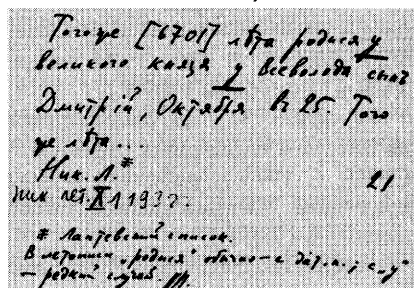 Тогоже [6701] лѣта родися у
великого князя у Всеволода сынъ
Дмитрій, Октября въ 25. Того
же лѣта...
Ник. Л.*
21
Ник лет. X 1193 г.
* Лаптевский список.
В летописи „родися" обычно с дат. п.; с „у"
— редкий случай.